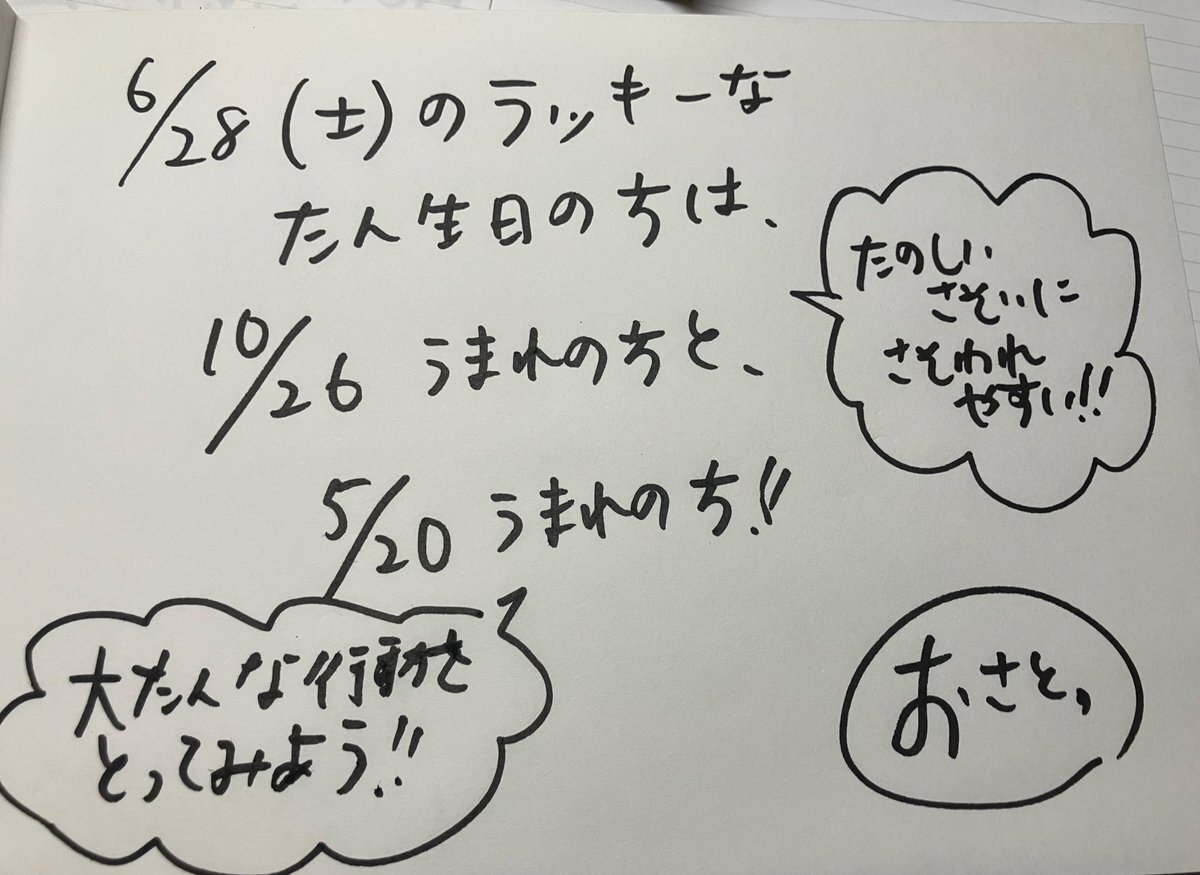 6/28(土)のラッキーな
たん生日のちは、
10/26 うまれのちと、
5/20 うまれのち!!
たのしい
さそいに
さそわれ
やすい!!
大たんな行動を
とってみよう!!
おさと、